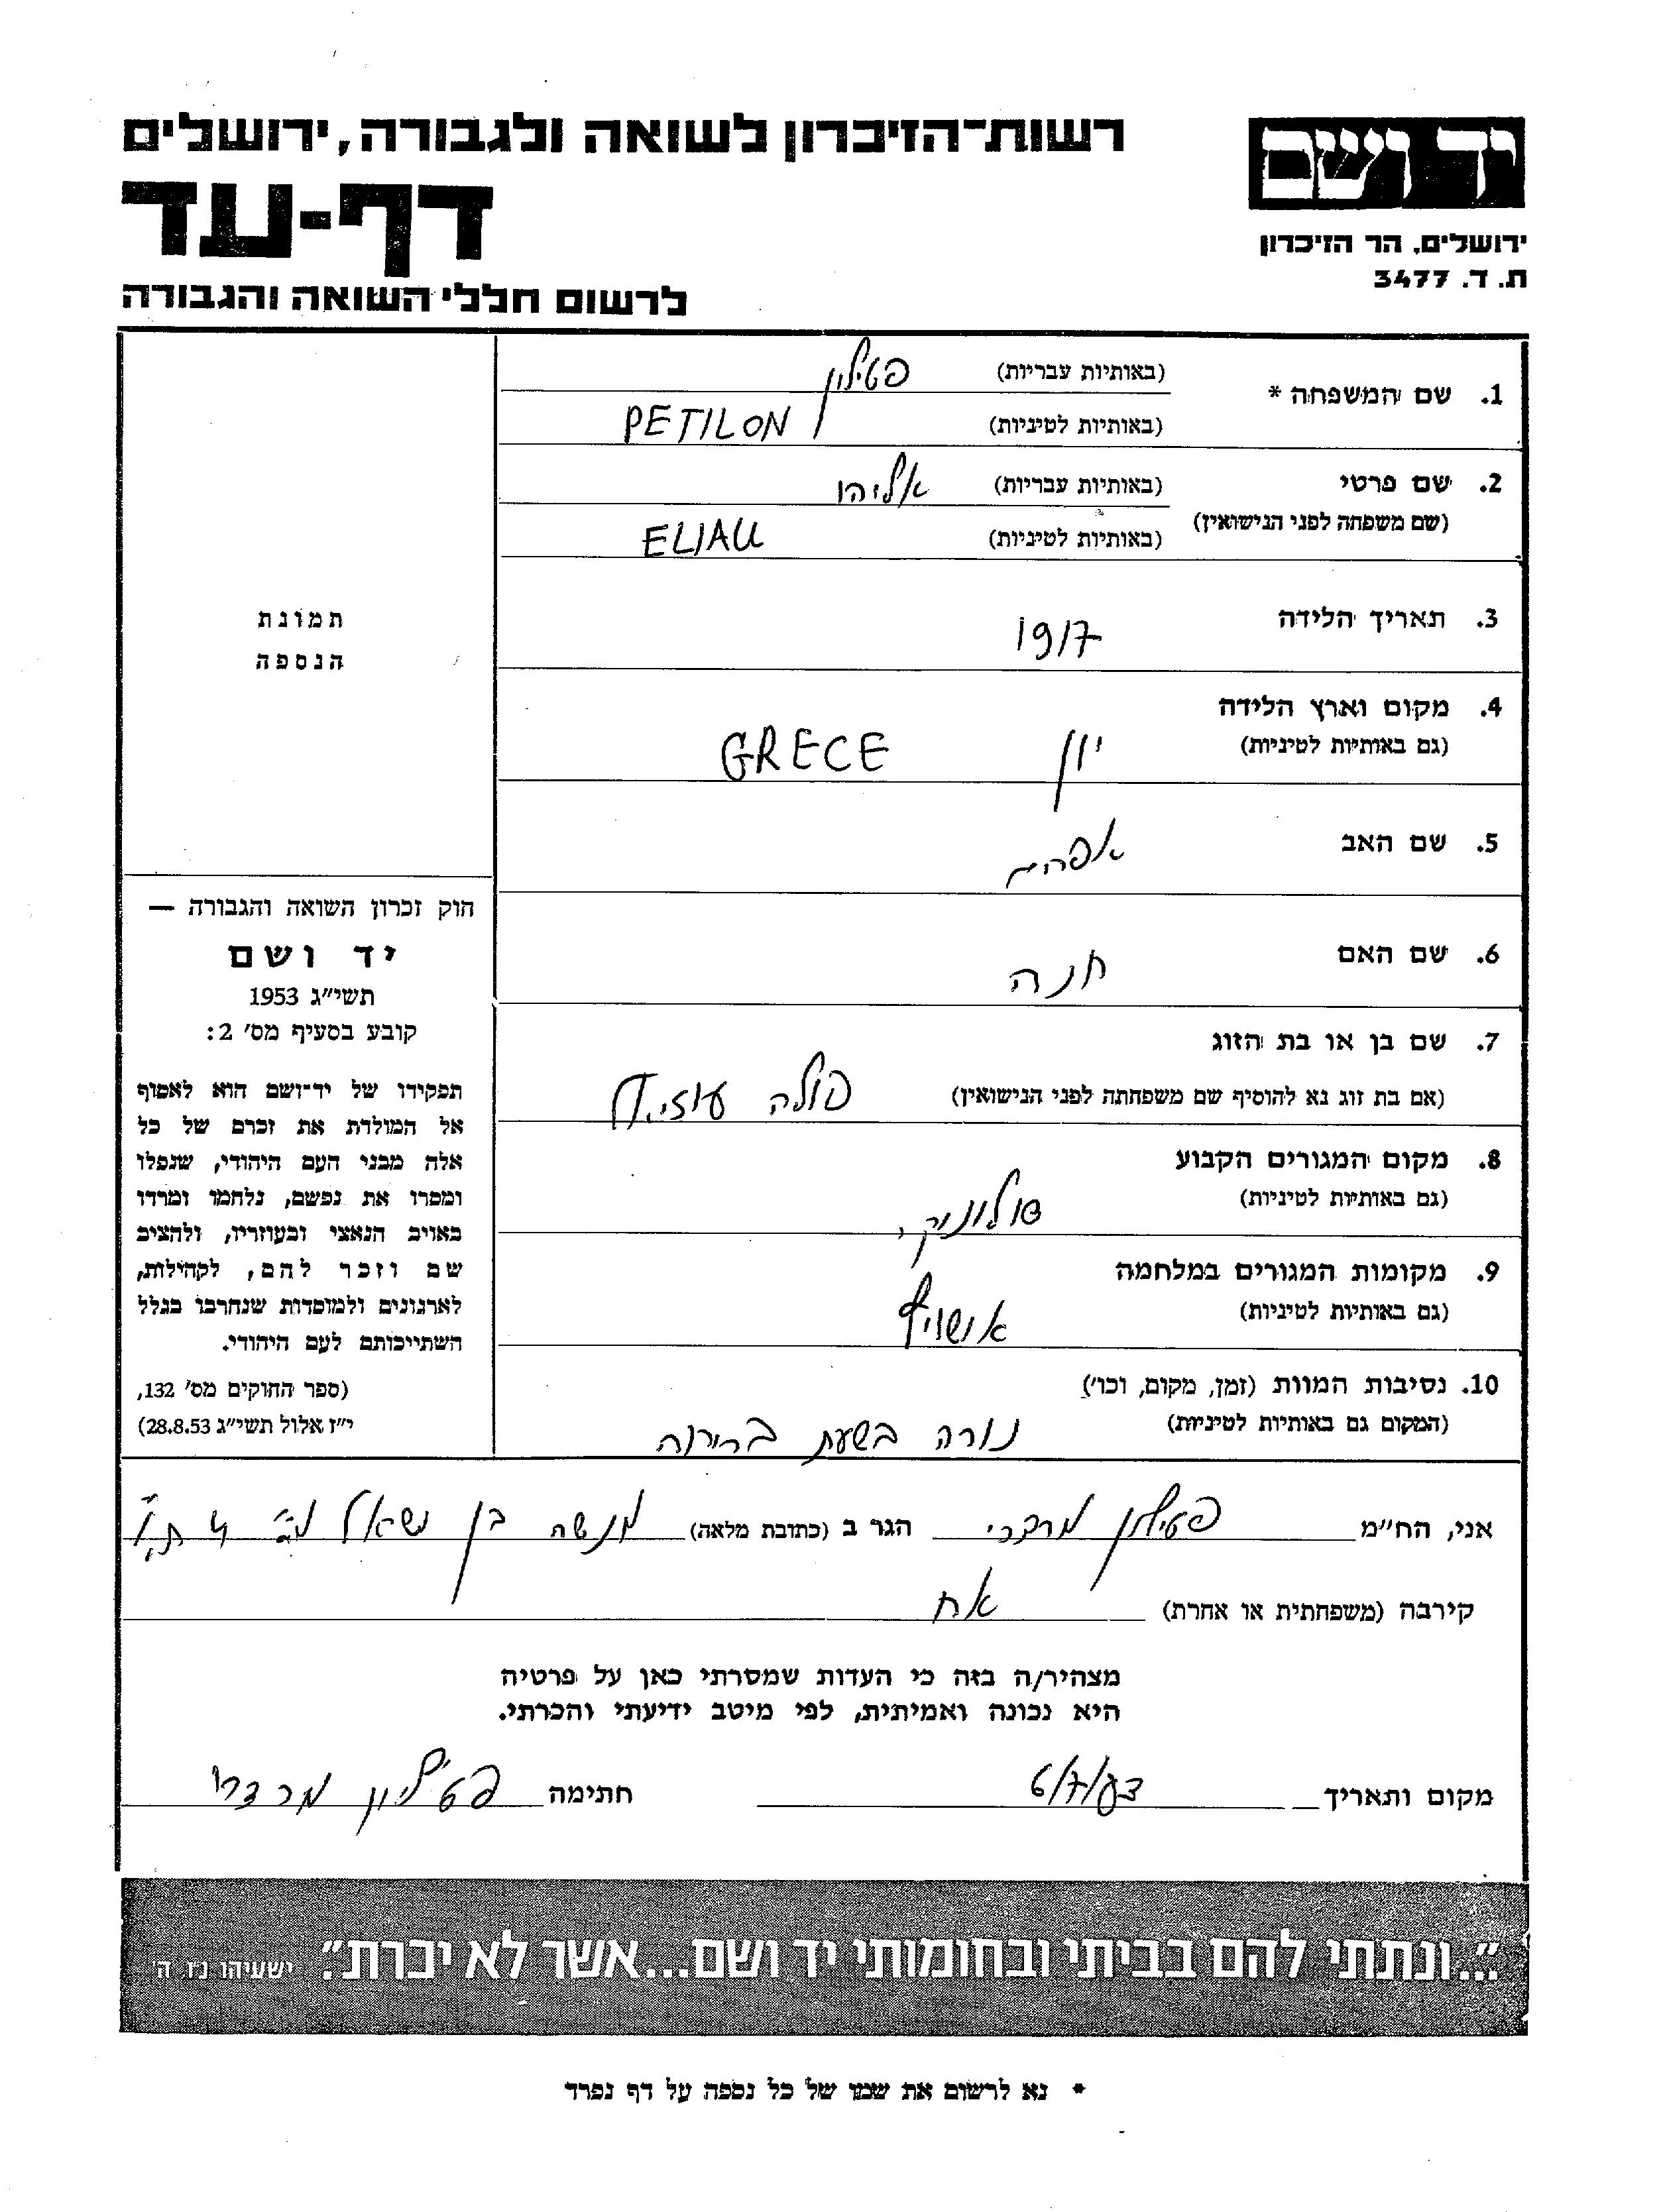 רשות־הזיכרון לשואה ולגבורה, ירושלים
דף-עד
לרשום חללי השואה והגבורה
יד ושם
ירושלים, הר הזיכרון
ת.ד. 3477
1. שם המשפחה * (באותיות עבריות) פטילון
(באותיות לטיניות) PETILON
2. שם פרטי (באותיות עבריות) אליהו
(שם משפחה לפני הנישואין) (באותיות לטיניות) ELIAU
3. תאריך הלידה 1917
4. מקום וארץ הלידה
(גם באותיות לטיניות) יון GRECE
5. שם האב אפרים
6. שם האם חנה
7. שם בן או בת הזוג
(אם בת זוג נא להוסיף שם משפחתה לפני הנישואין) פולה
8. מקום המגורים הקבוע
(גם באותיות לטיניות) סלוניקי
9. מקומות המגורים במלחמה
(גם באותיות לטיניות) אושויץ
10. נסיבות המוות (זמן, מקום, וכו')
(המקום גם באותיות לטיניות) נורה בשעת בריחה
תמונת
הנספה
חוק זכרון השואה והגבורה —
יד ושם
תשי"ג 1953
קובע בסעיף מס' 2:
תפקידו של יד־ושם הוא לאסוף
אל המולדת את זכרם של כל
אלה מבני העם היהודי, שנפלו
ומסרו את נפשם, נלחמו ומרדו
באויב הנאצי ובעוזריו, ולהציב
שם וזכר להם, לקהילות,
לארגונים ולמוסדות שנחרבו בגלל
השתייכותם לעם היהודי.
(ספר החוקים מס' 132,
י"ז אלול תשי"ג 28.8.53)
אני, הח"מ פטילון מרדכי הגר ב (כתובת מלאה) מנשה בן
קירבה (משפחתית או אחרת) אח
מצהיר/ה בזה כי העדות שמסרתי כאן על פרטיה
היא נכונה ואמיתית, לפי מיטב ידיעתי והכרתי.
מקום ותאריך 6/7/83 חתימה פטילון מרדכי
"...ונתתי להם בביתי ובחומותי יד ושם...אשר לא יכרת". ישעיהו נו, ה'
* נא לרשום את שמו של כל נספה על דף נפרד